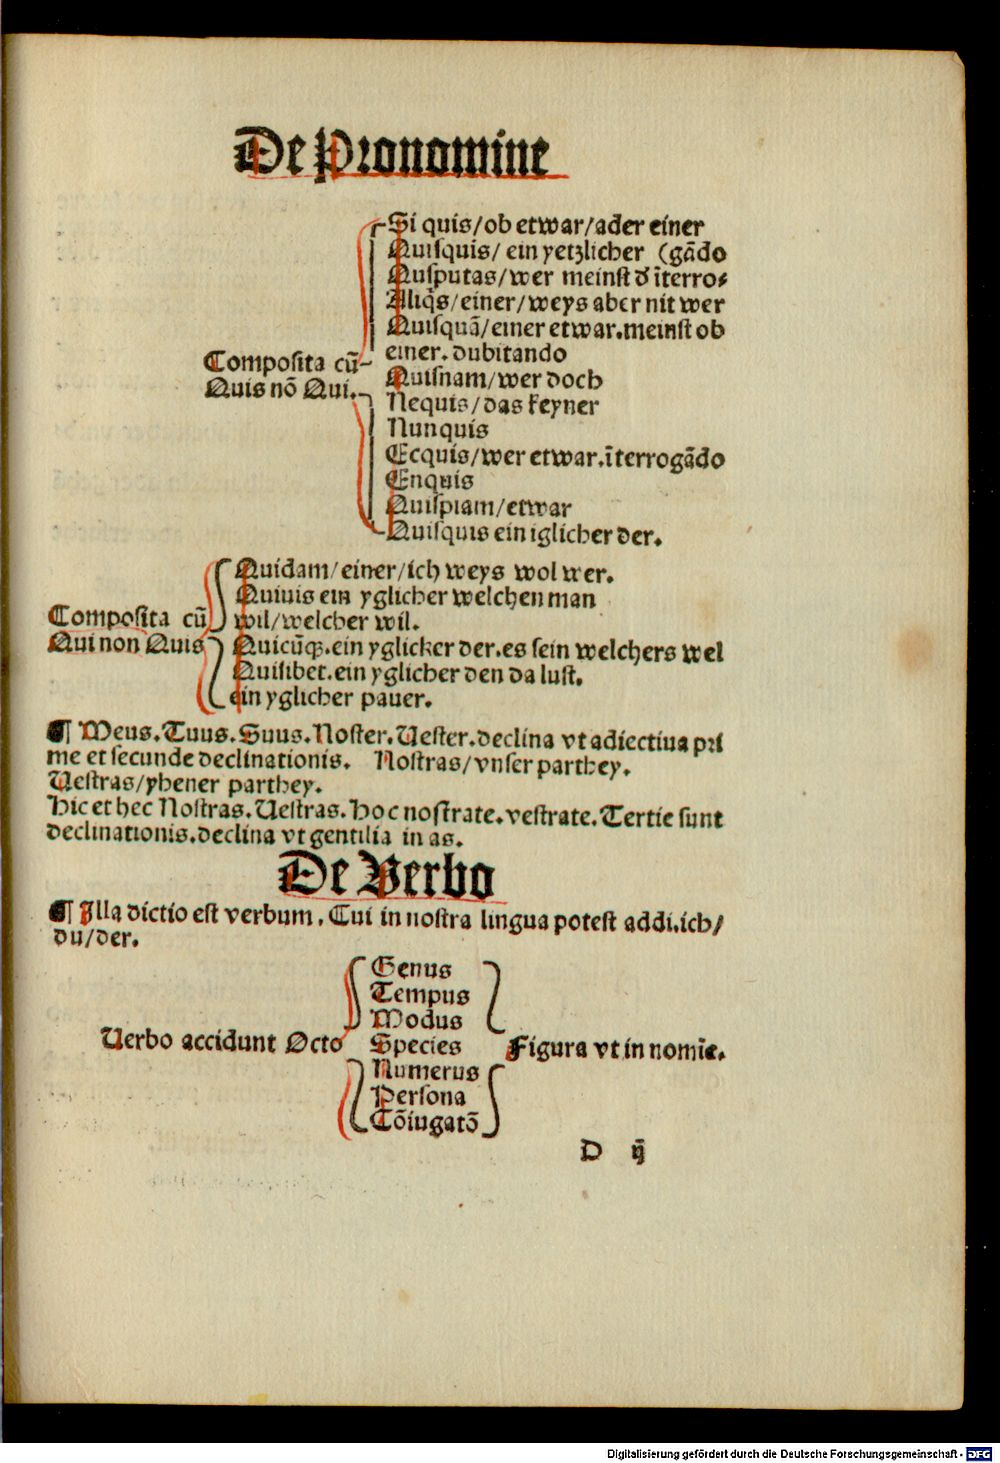 De Pronomine
Si quis/ob etwar/ader einer
Quisquis/ ein yetzlicher (gādo
Qusputas/wer meinst d' īterro⸗
Aliq̄s/einer/weys aber nit wer
Quisquā/einer etwar.meinst ob
einer. dubitando
Composita cū
Quis nō Qui.
Quisnam/wer doch
Nequis/das keyner
Nunquis
Ecquis/wer etwar.īterrogādo
Enquis
Quispiam/etwar
Quisquis ein iglicher der.
Quidam/einer/ich weys wol wer.
Quiuis ein yglicher welchen man
wil/welcher wil.
Composita cū
Qui non Quis
Quicūqꝫ.ein yglicker der.es sein welchers wel
Quilibet.ein yglicher den da lust.
ein yglicher pauer.
¶ Meus.Tuus.Suus.Noster.Uester.declina vt adiectiua pri
me et secunde declinationis. Nostras/vnser parthey.
Uestras/yhener parthey.
Hic et hec Nostras.Uestras.hoc nostrate.vestrate.Tertie sunt
declinationis.declina vt gentilia in as.
De Verbo
¶ Illa dictio est verbum. Cui in nostra lingua potest addi.ich/
du/der.
Genus
Tempus
Modus
Uerbo accidunt Octo
Species
Figura vt in nomīe.
Numerus
Persona
Cōiugatō
D ij
Digitalisierung gefördert durch die Deutsche Forschungsgemeinschaft - DFG